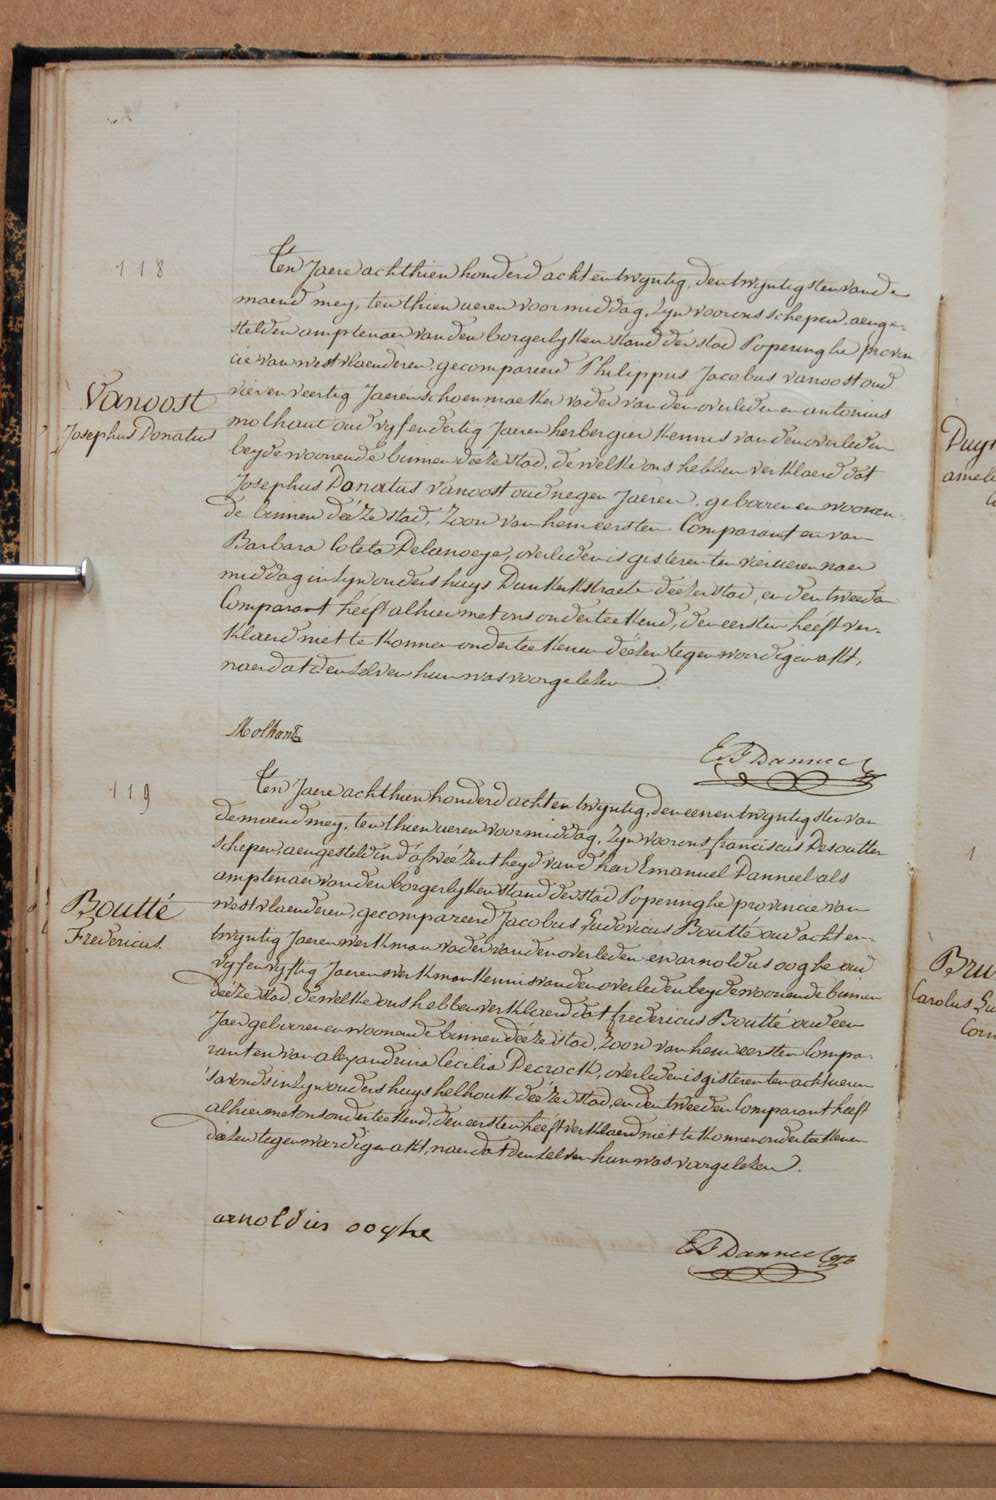 118
Vanoost
Josephus Donatus
Ten Jaere achthien honderd achtentwyntig, den twyntigsten van de
maend mey, ten thien ueren voormiddag, zyn voor ons schepen, aenge-
stelden amptenaer van den borgerlyken stand der stad Poperinghe provin
cie van westvlaenderen, gecompareerd Philippus Jacobus vanoost oud
vierenveertig Jaeren schoenmaeker vader van den overledenen antonius
molhant oud vyfendertig Jaeren herbergier kennis van den overleden
beyde woonende binnen deéze stad, de welke ons hebben verklaerd dat
Josephus Donatus vanoost oud negen Jaeren, gebooren en woonen-
de binnen deéze stad, Zoon van hem eersten Comparant en van
Barbara loleta Delanoeye, overleden is gisteren ten vier ueren naer
middag in zyn ouders huys Dunkerkstraete deézer stad, en den tweeden
Comparant heéft alhier met ons onderteekend, den eersten heéft ver-
klaerd niet te konnen onderteekenen deézen tegenwoordigen akt,
naer dat den zelven hun was voorgelezen.
Molhant
E. F. Danneel
119
Boutté
Fredericus
Ten Jaere achthien honderd achtentwyntig, den eenentwyntigsten van
de maend mey, ten thien ueren voormiddag, zyn voor ons franciscus Desoutter
schepen, aengesteld in d'afweézentheyd van d'heer Emanuel Danneel als
amptenaer van den borgerlyken stand der stad Poperinghe provincie van
westvlaenderen, gecompareerd Jacobus Ludovicus Boutté oud achten-
twyntig Jaeren werkman vader van den overleden en arnoldus ooghe oud
vyfenvyftig Jaeren werkman kennis van den overleden beyde woonende binnen
deéze stad, de welke ons hebben verklaerd dat fredericus Boutté oud een
Jaer gebooren en woonende binnen deéze stad, Zoon van hem eersten Compa-
rant en van alexandrina Cecilia Decrock, overleden is gisteren ten acht ueren
's avonds in zyn ouders huys helhoutk deézer stad, en den tweeden Comparant heéft
alhier met ons onderteekend, den eersten heéft verklaerd niet te konnen onderteekenen
deézen tegenwoordigen akt, naer dat den zelven hun was voorgelezen.
arnoldus ooghe
E. F. Danneel
1
Bru
Carolus Lu
Corn